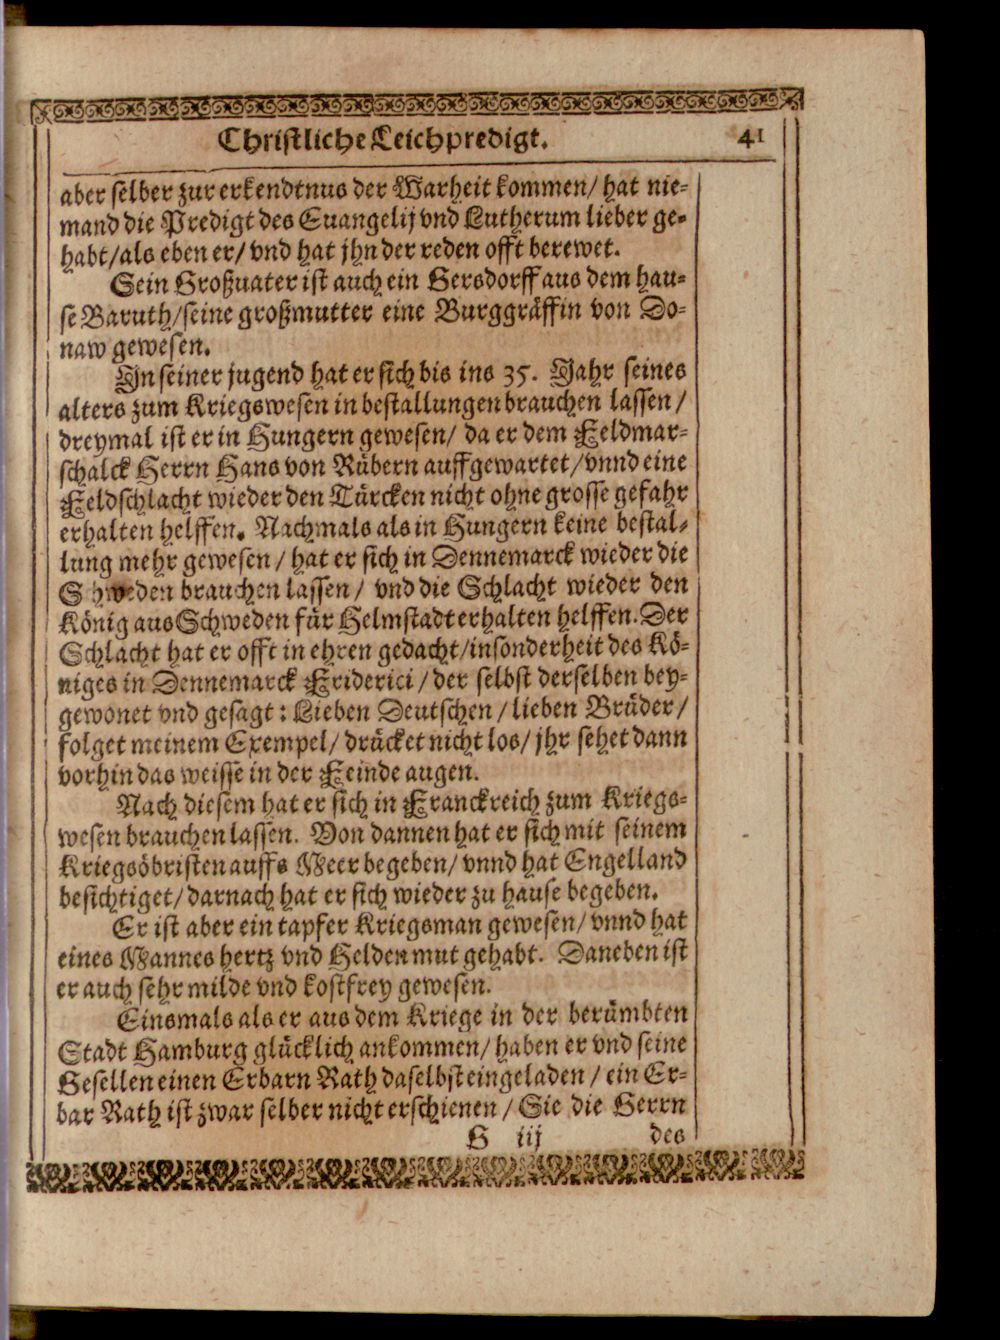 Christliche Leichpredigt. 41
aber selber zur erkendtnus der Warheit kommen/ hat nie-
mand die Predigt des Euangelij vnd Lutherum lieber ge-
habt/als eben er/ vnd hat jhn der reden offt berewet.
Sein Großuater ist auch ein Gersdorff aus dem hau-
se Baruth/seine großmutter eine Burggräffin von Do-
naw gewesen.
In seiner jugend hat er sich bis ins 35. Jahr seines
alters zum Kriegswesen in bestallungen brauchen lassen/
dreymal ist er in Hungern gewesen/ da er dem Feldmar-
schalck Herrn Hans von Rübern auffgewartet/vnnd eine
Feldschlacht wieder den Türcken nicht ohne grosse gefahr
erhalten helffen. Nachmals als in Hungern keine bestal-
lung mehr gewesen/ hat er sich in Dennemarck wieder die
S hweden brauchen lassen/ vnd die Schlacht wieder den
König aus Schweden für Helmstadt erhalten helffen. Der
Schlacht hat er offt in ehren gedacht/insonderheit des Kö-
niges in Dennemarck Friderici/der selbst derselben bey-
gewonet vnd gesagt: Lieben Deutschen/lieben Brüder/
folget meinem Exempel/ drücket nicht los/ jhr sehet dann
vorhin das weisse in der Feinde augen.
Nach diesem hat er sich in Franckreich zum Kriegs-
wesen brauchen lassen. Von dannen hat er sich mit seinem
Kriegsöbristen auffs Meer begeben/ vnnd hat Engelland
besichtiget/darnach hat er sich wieder zu hause begeben.
Er ist aber ein tapfer Kriegsman gewesen/vnnd hat
eines Mannes hertz vnd Helden mut gehabt. Daneben ist
er auch sehr milde vnd kostfrey gewesen.
Einsmals als er aus dem Kriege in der berümbten
Stadt Hamburg glücklich ankommen/ haben er vnd seine
Gesellen einen Erbarn Rath daselbst eingeladen/ein Er-
bar Rath ist zwar selber nicht erschienen/Sie die Herrn
G iij des